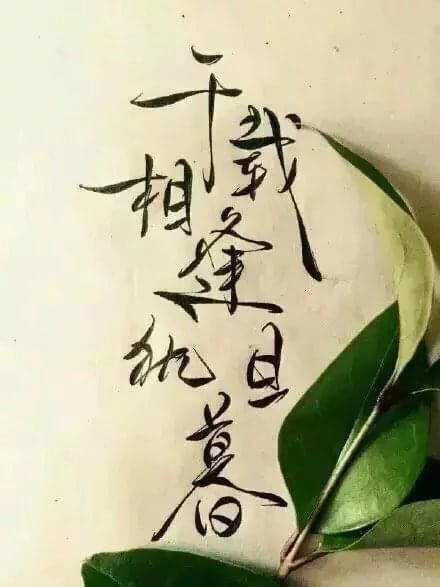 千载
相逢
犹旦
暮